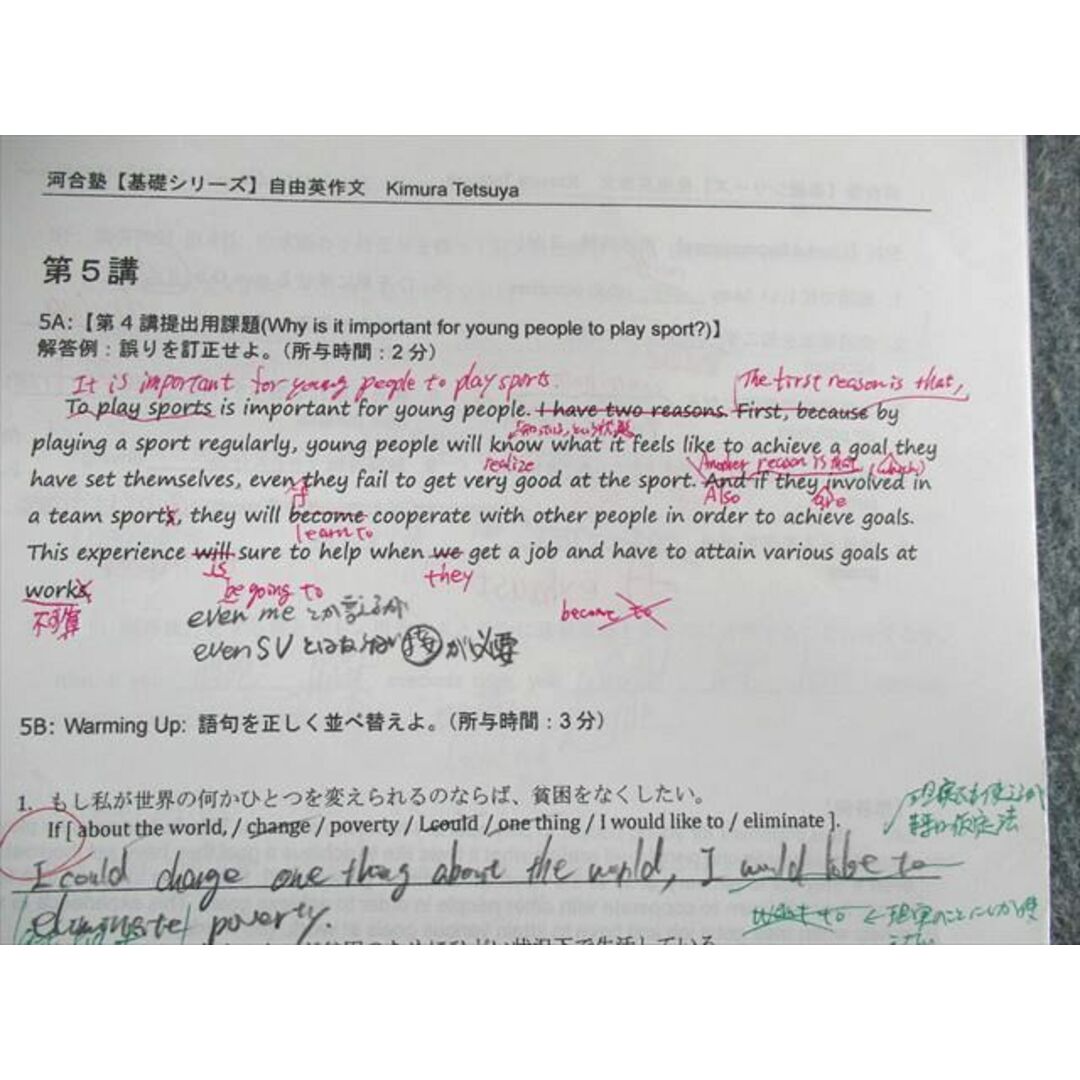 河合塾【基礎シリーズ】自由英作文 Kimura Tetsuya
第5講
5A:【第4講提出用課題(Why is it important for young people to play sport?)】
解答例：誤りを訂正せよ。（所与時間：2分）
It is important for young people to play sports.
The first reason is that,
To play sports is important for young people. I have two reasons. First, because by
playing a sport regularly, young people will know what it feels like to achieve a goal they
realize
Another reason is that
have set themselves, even they fail to get very good at the sport. And if they involved in
if
Also
are
a team sports, they will become cooperate with other people in order to achieve goals.
learn to
This experience will sure to help when we get a job and have to attain various goals at
is
they
works
be going to
不可算
become to
even me とか言えるが
even SV とはならない 接 が必要
5B: Warming Up: 語句を正しく並べ替えよ。（所与時間：3分）
1. もし私が世界の何かひとつを変えられるのならば、貧困をなくしたい。
If [ about the world, / change / poverty / I could / one thing / I would like to / eliminate ].
I could change one thing about the world, I would like to
eliminate poverty.
want to